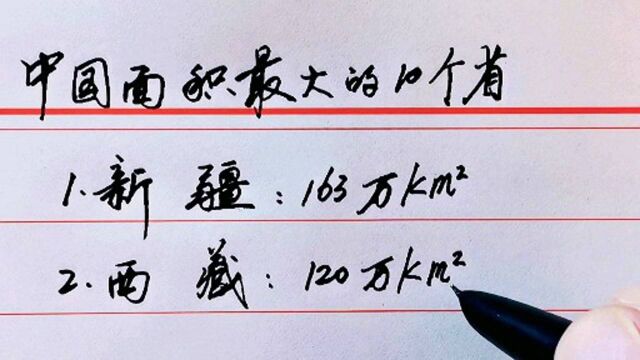 中国面积最大的10个省
1.新疆：163万km²
2.西藏：120万km²